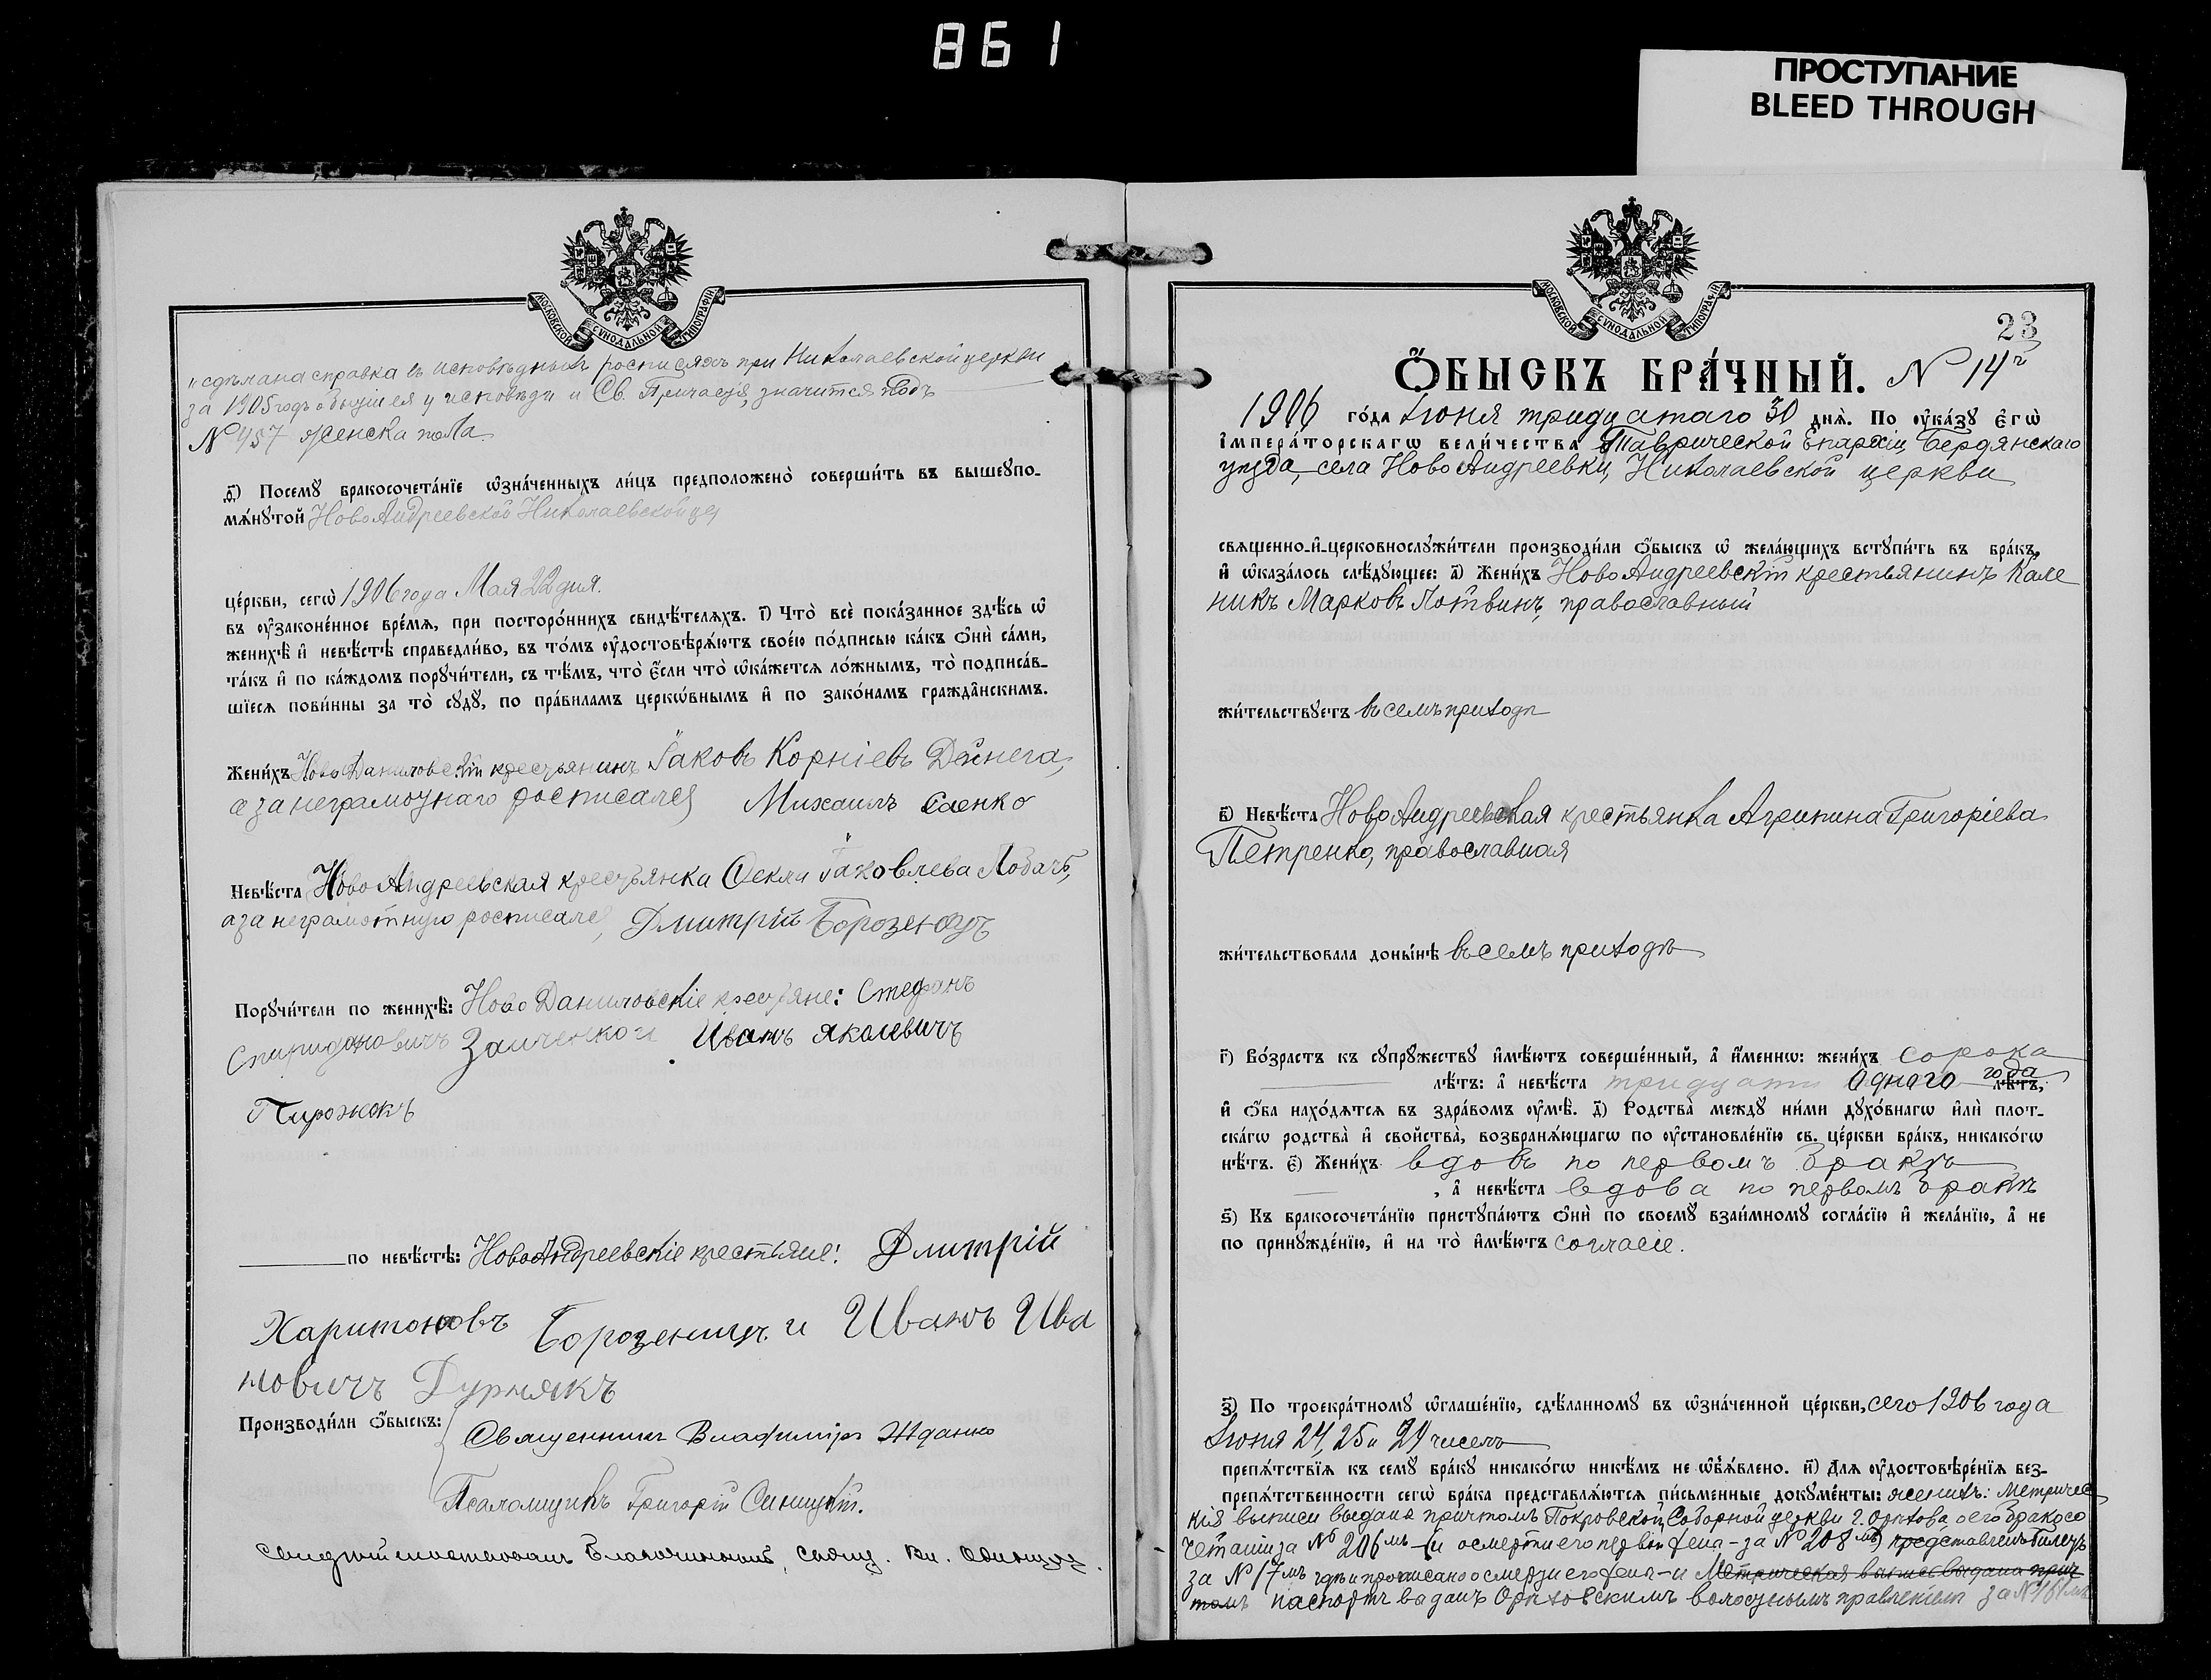 861
ПРОСТУПАНИЕ
BLEED THROUGH
МОСКОВСКОЙ СѴНОДАЛЬНОЙ ТИПОГРАФІИ
и сдѣлана справка въ исповѣдныхъ росписяхъ при Николаевской церкви
за 1905 годъ о бывшей у исповѣди и Св. Причастія, значится подъ
№ 457 женска пола.
д҃) Посемꙋ бракосочета́нїе ѡ҆зна́ченныхъ ли́цъ предположено̀ соверши́ть въ вышеꙋпо-
мѧ́нꙋтой НовоАндреевской Николаевской це
це́ркви, сегѡ̀ 1906 года Мая 22 дня.
въ ᲂу҆законе́нное вре́мѧ, при посторо́ннихъ свидѣ́телѧхъ. і҃) Что̀ всѐ пока́занное здѣ́сь ѡ҆
женихѣ̀ и҆ невѣ́стѣ справедли́во, въ то́мъ ᲂу҆достовѣрѧ́ютъ свое́ю по́дписью ка́къ ѻ҆нѝ са́ми,
та́къ и҆ по ка́ждомъ порꙋчи́тели, съ тѣ́мъ, что̀ є҆́сли что̀ ѡ҆ка́жетсѧ ло́жнымъ, то̀ подписа́в-
шїесѧ пови́нны за то̀ сꙋдꙋ̀, по пра́виламъ церкѡ́внымъ и҆ по зако́намъ гражда̑нскимъ.
Жени́хъ НовоДаниловскій крестьянинъ Іаковъ Корніевъ Дейнега,
а за неграмотнаго росписался Михаилъ Саенко
Невѣ́ста НовоАндреевская крестьянка Ѳекла Іаковлева Лобачъ,
а за неграмотную росписался, Дмитрій Борозенецъ
Порꙋчи́тели по женихѣ̀: НовоДаниловскіе крестьяне: Стефанъ
Спиридоновичъ Заиченко и Иванъ Яколевичъ
Пирожокъ
по невѣ́стѣ: НовоАндреевскіе крестьяне: Дмитрій
Харитоновъ Борозенецъ и Иванъ Ива
новичъ Дурнякъ
Производи́ли ѻ҆́быскъ: Священникъ Владиміръ Жданко
Псаломщикъ Григорій Синицкій.
Благочинный, Свящ. Вл.
МОСКОВСКОЙ СѴНОДАЛЬНОЙ ТИПОГРАФІИ
23
Ѻ҆́БЫСКЪ БРА́ЧНЫЙ. № 14й
1906 го́да Іюня тридцатаго 30 днѧ̀. По ᲂу҆ка́зꙋ є҆гѡ̀
і҆мпера́торскагѡ вели́чества Таврической Епархіи, Бердянскаго
уѣзда, села НовоАндреевки, Николаевской церкви
свѧщенно-и҆-церковнослꙋжи́тели производи́ли ѻ҆́быскъ ѡ҆ жела́ющихъ встꙋпи́ть въ бра́къ,
и҆ ѡ҆каза́лось слѣ́дꙋющее: а҃) Жени́хъ НовоАндреевскій крестьянинъ Кале
никъ Марковъ Лотвинъ, православный
жи́тельствꙋетъ въ семъ приходѣ
в҃) Невѣ́ста НовоАндреевская крестьянка Агрипина Григоріева
Петренко, православная
жи́тельствовала доны́нѣ въ семъ приходѣ
г҃) Во́зрастъ къ сꙋпрꙋ́жествꙋ и҆мѣ́ютъ соверше́нный, а҆ и҆́меннѡ: жени́хъ сорока
лѣ́тъ: а҆ невѣ́ста тридцати одного года лѣ́тъ,
и҆ ѻ҆́ба нахо́дѧтсѧ въ здра́вомъ ᲂу҆мѣ̀. д҃) Родства̀ междꙋ̀ ни́ми дꙋхо́внагѡ и҆лѝ плот-
ска́гѡ родства̀ и҆ свойства̀, возбранѧ́ющагѡ по ᲂу҆становле́нїю св. це́ркви бра́къ, никако́гѡ
нѣ́тъ. є҃) Жени́хъ вдовъ по первомъ бракѣ
, а҆ невѣ́ста вдова по первомъ бракѣ
ѕ҃) Къ бракосочета́нїю пристꙋпа́ютъ ѻ҆нѝ по своемꙋ̀ взаи́мномꙋ согла́сїю и҆ жела́нїю, а҆ не
по принꙋжде́нїю, и҆ на то̀ и҆мѣ́ютъ согласіе.
з҃) По троекра́тномꙋ ѡ҆глаше́нїю, сдѣ́ланномꙋ въ ѡ҆зна́ченной це́ркви, сего 1906 года
Іюня 24, 25 и 29 чиселъ
препѧ́тствїѧ къ семꙋ̀ бра́кꙋ никако́гѡ никѣ́мъ не ѡ҆б̾ѧ́влено. и҃) Длѧ ᲂу҆достовѣре́нїѧ без-
препѧ́тственности сегѡ̀ бра́ка представлѧ́ютсѧ пи́сьменные докꙋме́нты: женихъ: Метричес
кія выписи выдана причтомъ Покровской Соборной церкви г. Орѣхова о его бракосо
четаніи за № 206мъ и о смерти его первой жены - за № 208мъ) представленъ билетъ
за № 17мъ гдѣ и прописано о смерти его жены - и Метрическая выпись выдана прич
томъ паспортъ выданъ Орѣховскимъ волостнымъ правленіемъ за №